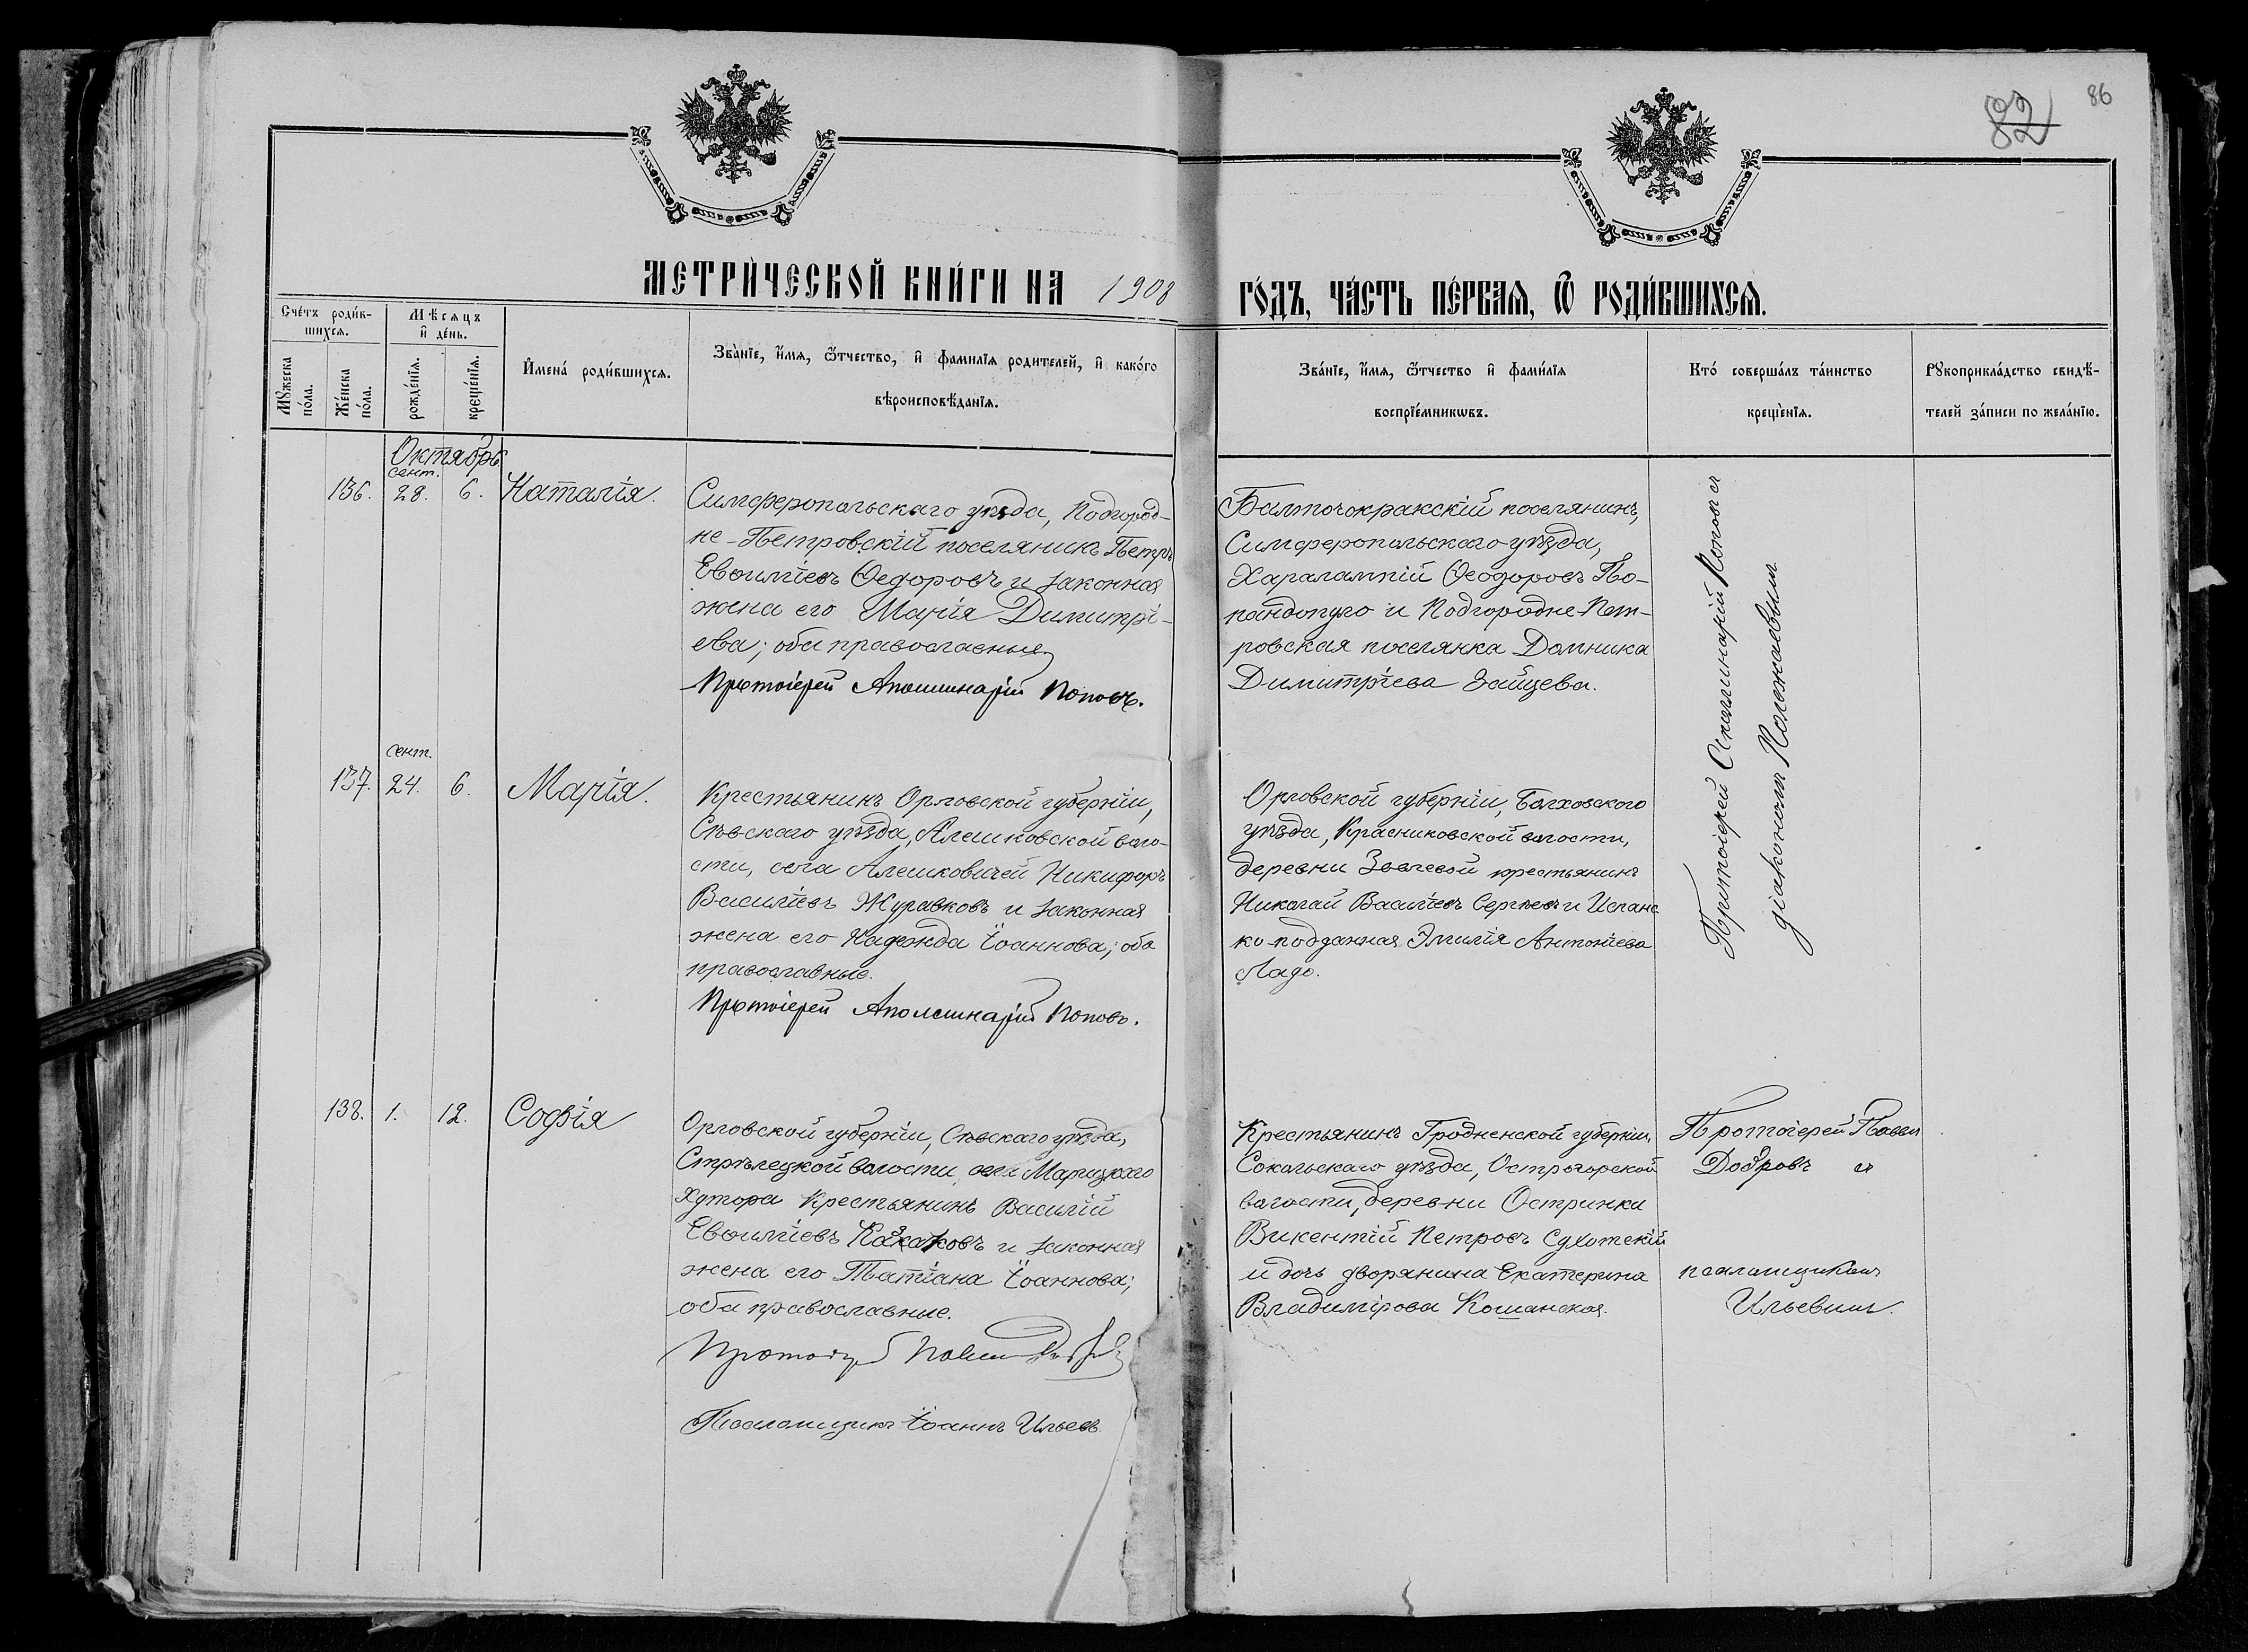 82
86
МЕТРИ́ЧЕСКОЙ КНИ́ГИ НА 1908
ГО́ДЪ, ЧА́СТЬ ПЕ́РВАЯ, Ѡ҃ РОДИ́ВШИХСѦ.
Сче́тъ роди́в-
шихсѧ.
Мꙋ́жеска
по́ла.
Же́нска
по́ла.
Мѣ́сѧцъ
и҆ де́нь.
рожде́нїѧ.
креще́нїѧ.
И҆мена̀ роди́вшихсѧ.
Зва́нїе, и҆́мѧ, ѻ҆́тчество, и҆ фамилїѧ родителей, и҆ како́гѡ
вѣроисповѣ́данїѧ.
Зва́нїе, и҆́мѧ, ѻ҆́тчество и҆ фами́лїѧ
воспрїе́мникѡвъ.
Кто̀ соверша́лъ та́инство
креще́нїѧ.
Рꙋкоприкла́дство свидѣ́-
телей за́писи по жела́нїю.
Октябрь
сент.
136. 28. 6. Наталія.
Симферопольскаго уѣзда, Подгород-
не-Петровскій поселянинъ Петръ
Евѳиміевъ Ѳедоровъ и законная
жена его Марія Димитрі-
ева; оба православные
Протоіерей Аполлинарій Поповъ.
Балточокракскій поселянинъ,
Симферопольскаго уѣзда,
Харалампій Ѳеодоровъ По-
пандопуло и Подгородне-Пет-
ровская поселянка Домника
Димитріева Зайцева.
Протоіерей Аполлинарій Поповъ съ
діакономъ Полежаевымъ
сент.
137. 24. 6. Марія.
Крестьянинъ Орловской губерніи,
Сѣвскаго уѣзда, Алешковской воло-
сти, села Алешковичей Никифоръ
Василіевъ Журавковъ и законная
жена его Надежда Іоаннова; оба
православные.
Протоіерей Аполлинарій Поповъ.
Орловской губерніи, Болховского
уѣзда, Красниковской волости,
деревни крестьянинъ
Николай Василіевъ Сергѣевъ и Испанс
ко-подданная Эмилія Антоніева
Ладо.
138. 1. 12. Софія
Орловской губерніи, Сѣвскаго уѣзда,
Стрѣлецкой волости, села Марицкаго
Хутора Крестьянинъ Василій
Евѳиміевъ Казаковъ и законная
жена его Татіана Іоаннова;
оба православные.
Протоіерей Павелъ Добровъ
Псаломщикъ Іоаннъ Ильевъ
Крестьянинъ Гродненской губерніи,
Сокольскаго уѣзда, Острогорской
волости, деревни Остринки
Викентій Петровъ Сухотскій
и дочь дворянина Екатерина
Владимірова Кошанская.
Протоіерей Павелъ
Добровъ съ
псаломщикомъ
Ильевымъ.